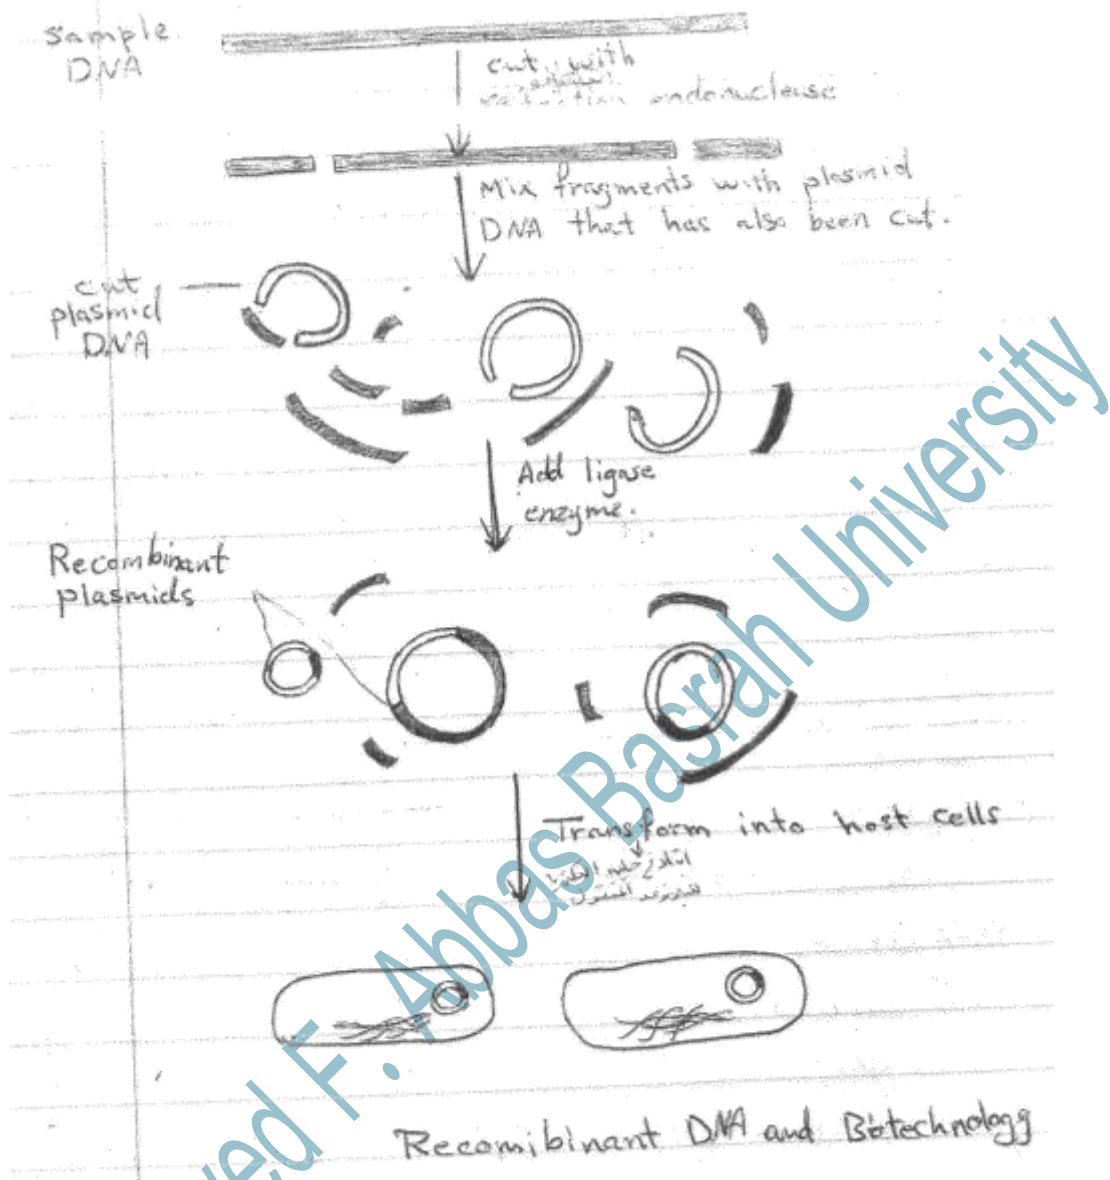 Sample
DNA
cut with
endonuclease
Mix fragments with plasmid
DNA that has also been cut.
cut
plasmid
DNA
Add ligase
enzyme.
Recombinant
plasmids
Transform into host cells
Recombinant DNA and Biotechnology
F. Abbas Basrah University